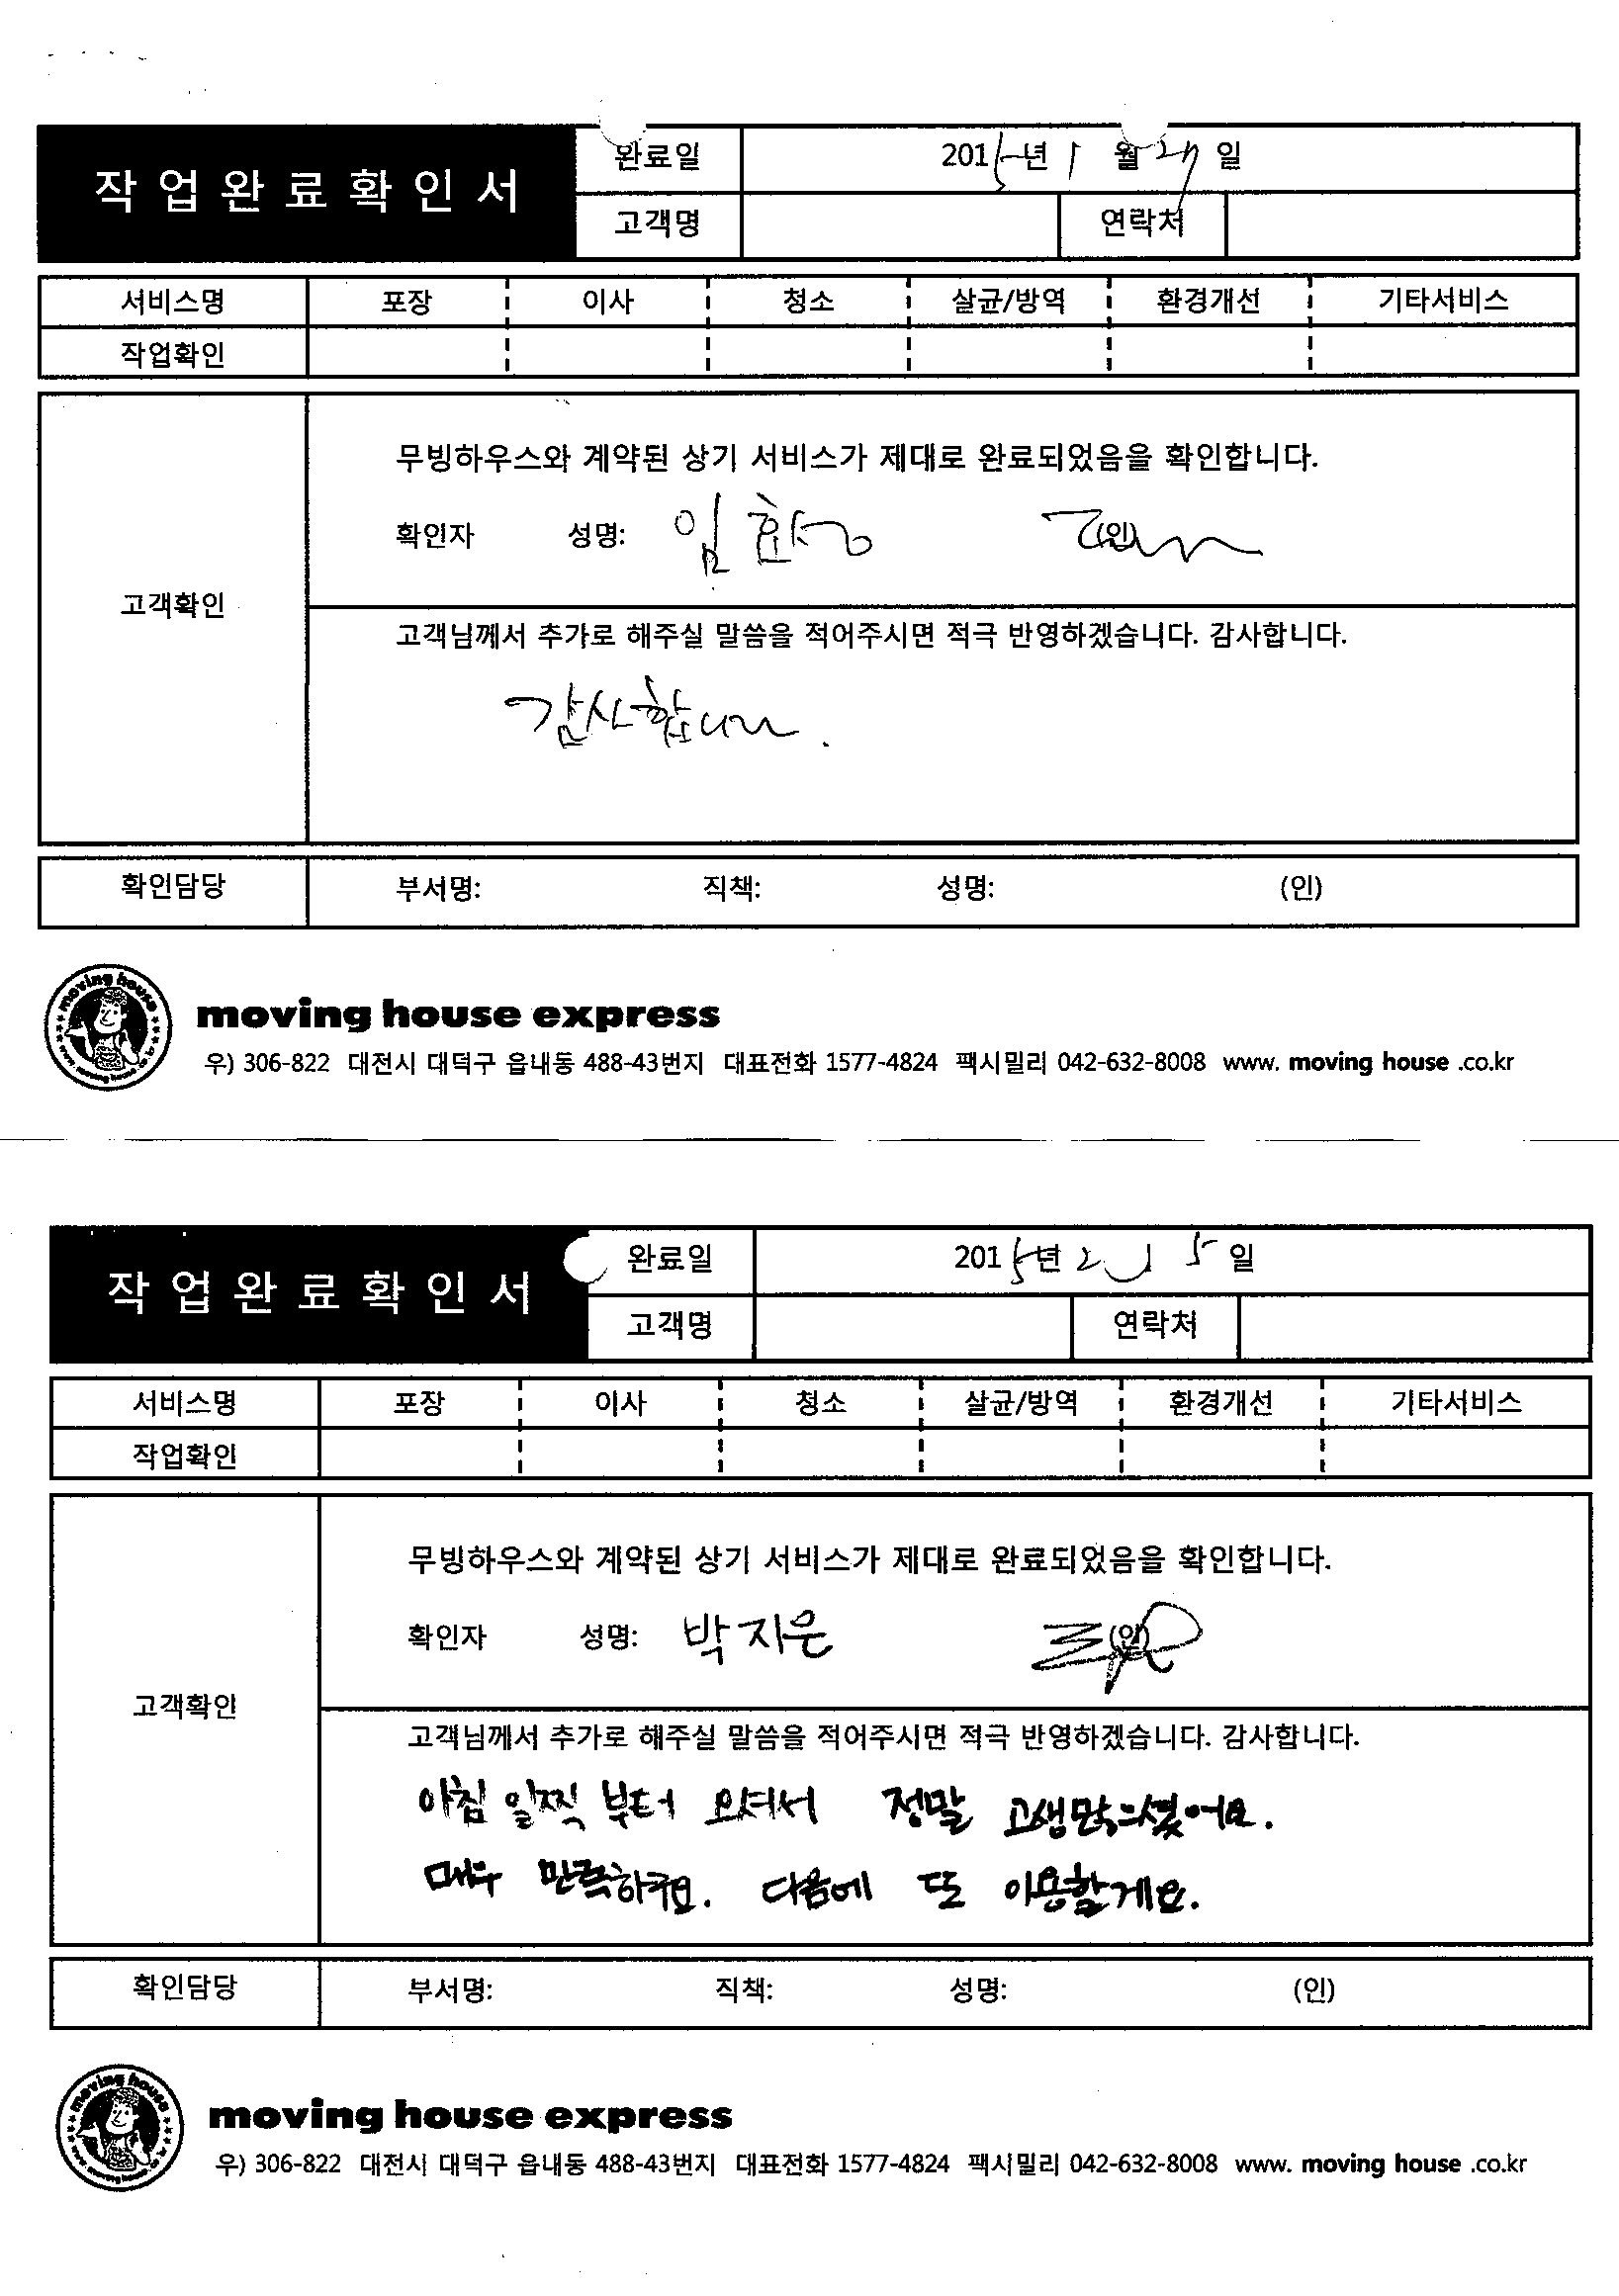 작업완료확인서
완료일 2015년 1월 27일
고객명 연락처
서비스명 포장 이사 청소 살균/방역 환경개선 기타서비스
작업확인
고객확인
무빙하우스와 계약된 상기 서비스가 제대로 완료되었음을 확인합니다.
확인자 성명: 임 (인)
고객님께서 추가로 해주실 말씀을 적어주시면 적극 반영하겠습니다. 감사합니다.
감사합니다.
확인담당 부서명: 직책: 성명: (인)
moving house express
우) 306-822 대전시 대덕구 읍내동 488-43번지 대표전화 1577-4824 팩시밀리 042-632-8008 www. moving house .co.kr
작업완료확인서
완료일 2015년 2월 5일
고객명 연락처
서비스명 포장 이사 청소 살균/방역 환경개선 기타서비스
작업확인
고객확인
무빙하우스와 계약된 상기 서비스가 제대로 완료되었음을 확인합니다.
확인자 성명: 박지은 (인)
고객님께서 추가로 해주실 말씀을 적어주시면 적극 반영하겠습니다. 감사합니다.
아침 일찍 부터 오셔서 정말 고생많으셨어요.
매우 만족하구요. 다음에 또 이용할게요.
확인담당 부서명: 직책: 성명: (인)
moving house express
우) 306-822 대전시 대덕구 읍내동 488-43번지 대표전화 1577-4824 팩시밀리 042-632-8008 www. moving house .co.kr